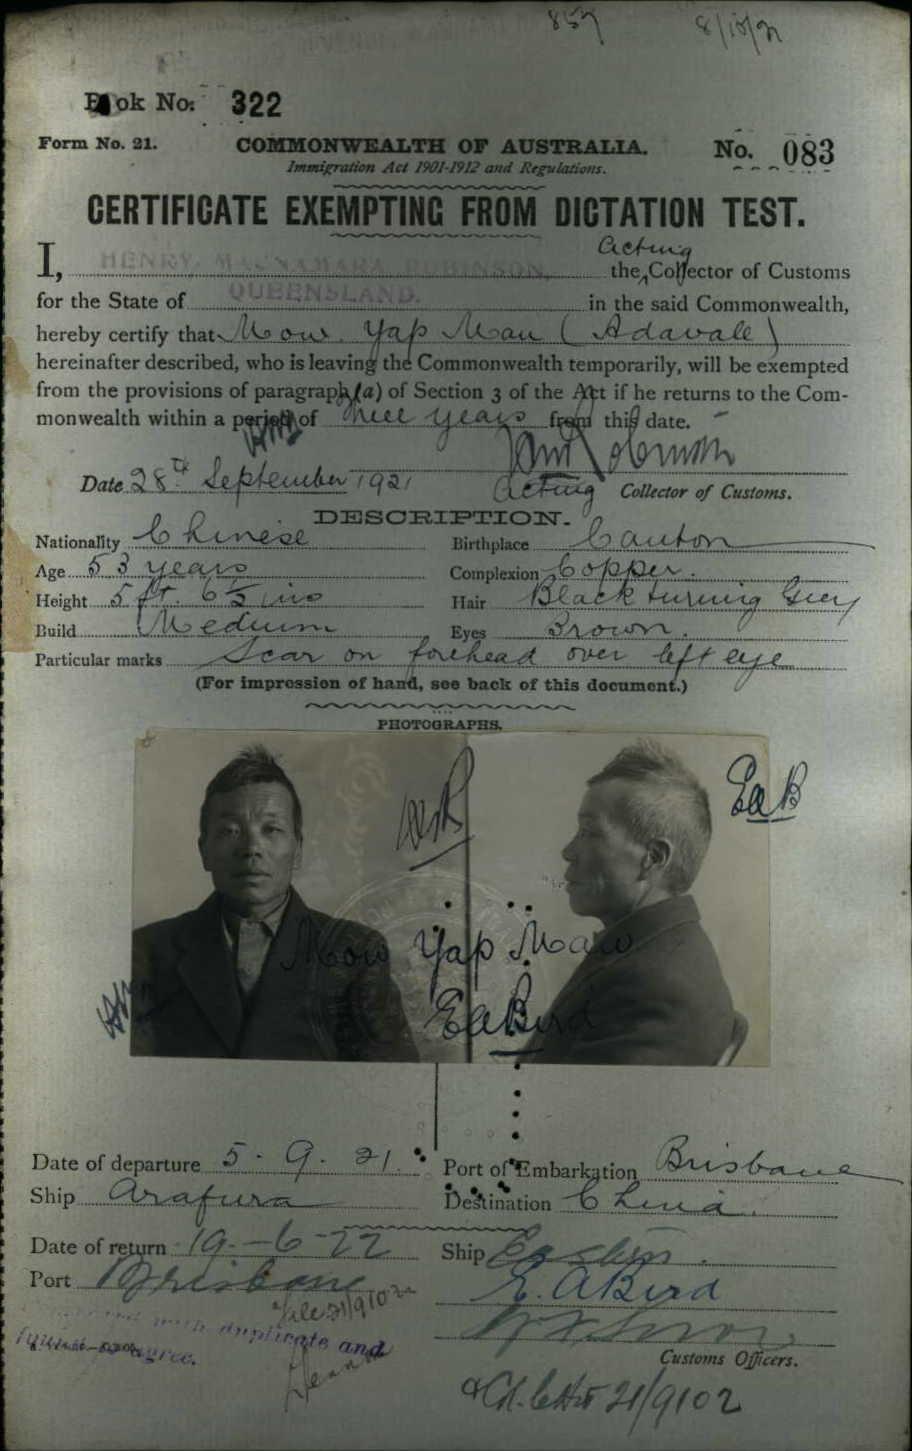 857 8/10/21
Book No: 322
Form No. 21. COMMONWEALTH OF AUSTRALIA. No. 083
Immigration Act 1901-1912 and Regulations.
CERTIFICATE EXEMPTING FROM DICTATION TEST.
Acting
I, HENRY MACNAMARA ROBINSON, the Collector of Customs
for the State of QUEENSLAND. in the said Commonwealth,
hereby certify that Mow Yap Man (Adavale)
hereinafter described, who is leaving the Commonwealth temporarily, will be exempted
from the provisions of paragraph (a) of Section 3 of the Act if he returns to the Com-
monwealth within a period of Three years from this date.
Date 28th September 1921 Acting Collector of Customs.
DESCRIPTION.
Nationality Chinese Birthplace Canton
Age 53 years Complexion Copper.
Height 5 ft. 6½ ins Hair Black turning Grey
Build Medium Eyes Brown.
Particular marks Scar on forehead over left eye
(For impression of hand, see back of this document.)
PHOTOGRAPHS.
EaB
Mow Yap Maw
EaBird
Date of departure 5. 9. 21. Port of Embarkation Brisbane
Ship Arafura Destination China.
Date of return 19-6-22 Ship Eastern.
Port Brisbane E. A Bird
File 21/9102
with duplicate and
agree.
Customs Officers.
21/9102